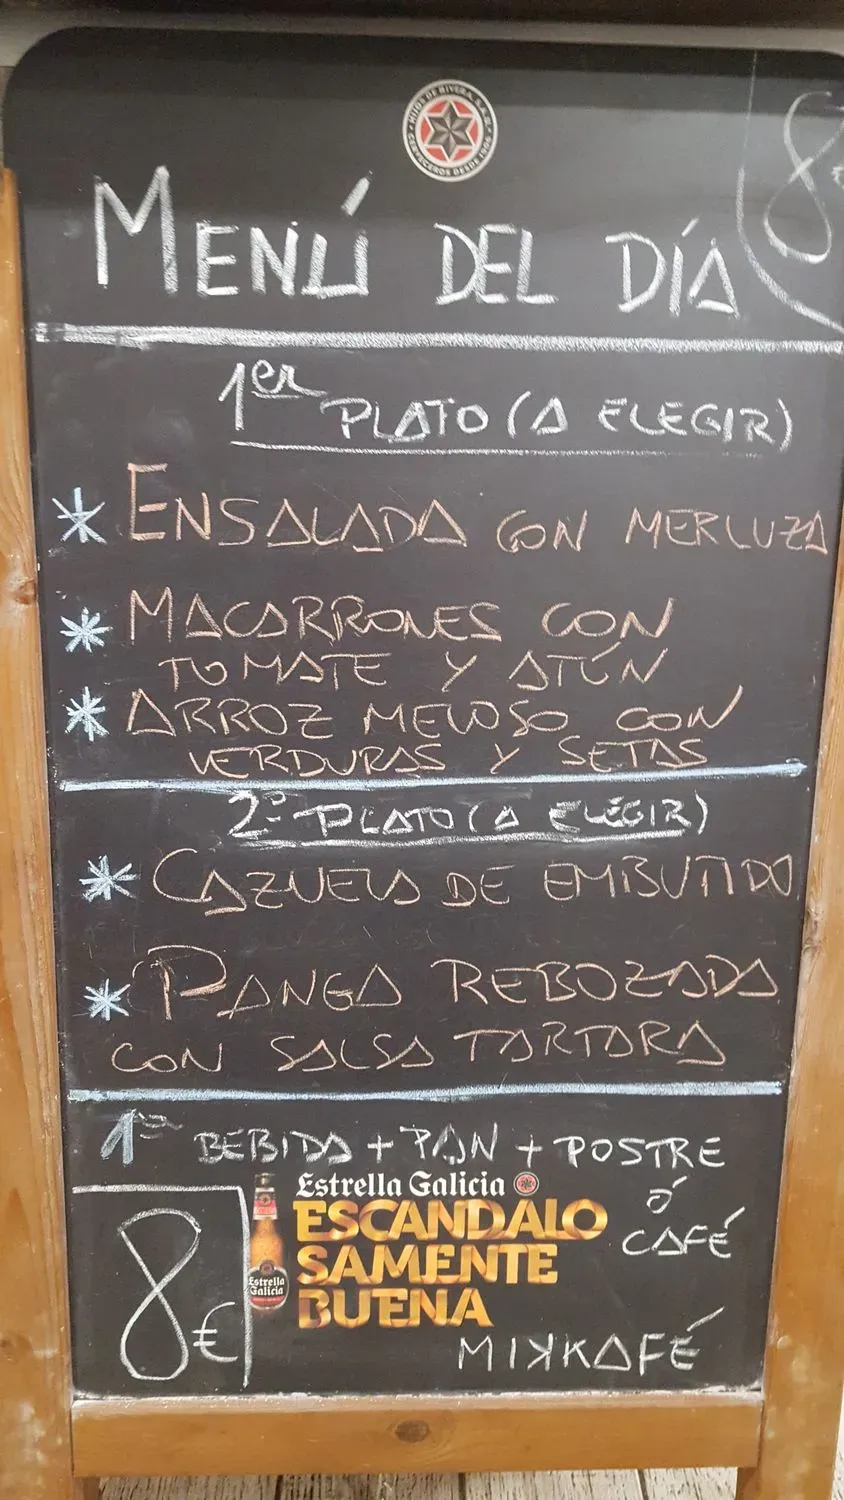 HIJOS DE RIVERA, S.A.U. • CERVECEROS DESDE 1906 •
8€
MENÚ DEL DÍA
1er PLATO (A ELEGIR)
* ENSALADA CON MERLUZA
* MACARRONES CON
TOMATE Y ATÚN
* ARROZ MELOSO CON
VERDURAS Y SETAS
2º PLATO (A ELEGIR)
* CAZUELA DE EMBUTIDO
* PANGA REBOZADA
CON SALSA TARTARA
1ª BEBIDA + PAN + POSTRE
ó
CAFÉ
Estrella Galicia
ESCANDALO
SAMENTE
BUENA
Estrella
Galicia
8€
MIKKAFÉ